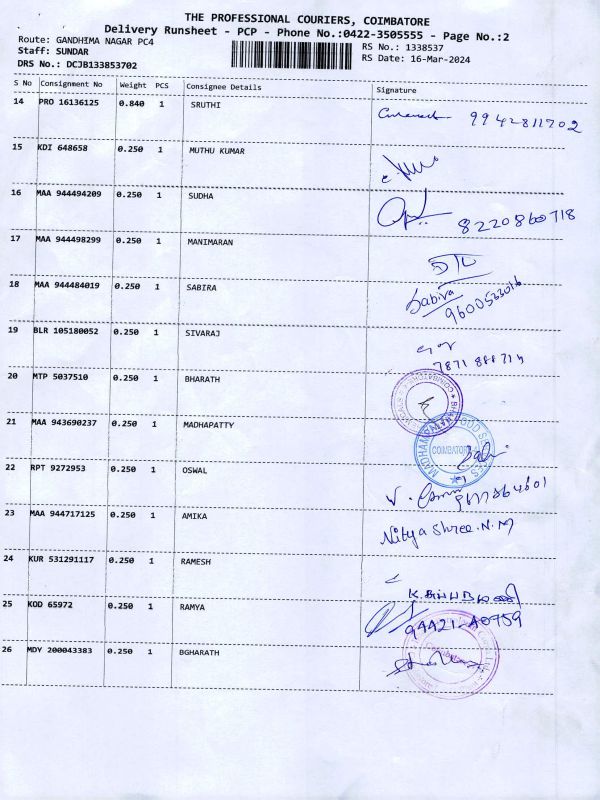 THE PROFESSIONAL COURIERS, COIMBATORE
Delivery Runsheet - PCP - Phone No.:0422-3505555 - Page No.:2
Route: GANDHIMA NAGAR PC4
RS No.: 1338537
Staff: SUNDAR
RS Date: 16-Mar-2024
DRS No.: DCJB133853702
S No Consignment No Weight PCS Consignee Details Signature
14 PRO 16136125 0.840 1 SRUTHI 9942811702
15 KDI 648658 0.250 1 MUTHU KUMAR
16 MAA 944494209 0.250 1 SUDHA 8220860718
17 MAA 944498299 0.250 1 MANIMARAN
18 MAA 944484019 0.250 1 SABIRA Sabira
19 BLR 105180052 0.250 1 SIVARAJ
20 MTP 5037510 0.250 1 BHARATH
21 MAA 943690237 0.250 1 MADHAPATTY COIMBATORE
22 RPT 9272953 0.250 1 OSWAL
23 MAA 944717125 0.250 1 AMIKA Nitya Shree.N.M
24 KUR 531291117 0.250 1 RAMESH
25 KOD 65972 0.250 1 RAMYA 94421-40759
26 MDY 200043383 0.250 1 BGHARATH